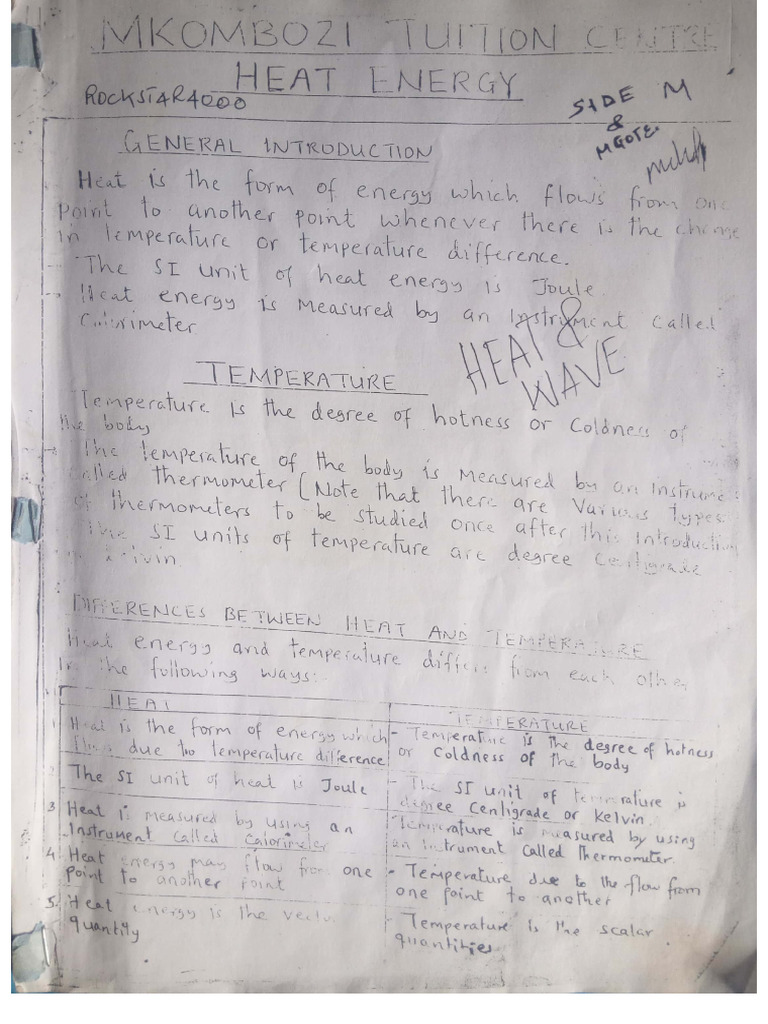 MKOMBOZI TUITION CENTRE
HEAT ENERGY
ROCKSTAR4000
SIDE M
&
MGOTE.
GENERAL INTRODUCTION
Heat is the form of energy which flows from one
Point to another point whenever there is the change
in temperature or temperature difference.
The SI unit of heat energy is Joule.
Heat energy is Measured by an Instrument called
Calorimeter
HEAT &
WAVE
TEMPERATURE
Temperature is the degree of hotness or Coldness of
the body
The temperature of the body is Measured by an Instrume
called thermometer (Note that there are Various types
of thermometers to be studied once after this Introduction
The SI units of temperature are degree Centigrade
DIFFERENCES BETWEEN HEAT AND TEMPERATURE
Heat energy and temperature differ from each other
In the following ways:-
HEAT
TEMPERATURE
1 Heat is the form of energy which
flows due to temperature difference
- Temperature is the degree of hotness
or Coldness of the body
2 The SI unit of heat is Joule
- The SI unit of temperature is
degree Centigrade or Kelvin.
3 Heat is measured by using an
Instrument called Calorimeter
Temperature is measured by using
an Instrument called Thermometer.
4 Heat energy may flow from one
point to another point
- Temperature due to the flow from
one point to another
5. Heat energy is the vector
quantity
- Temperature is the scalar
quantities